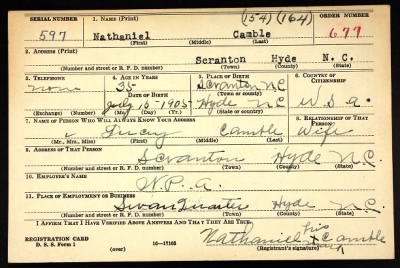 SERIAL NUMBER 1. NAME (Print) (154) (164) ORDER NUMBER
597 Nathaniel Camble 677
(First) (Middle) (Last)
2. ADDRESS (Print)
Scranton Hyde N. C.
(Number and street or R. F. D. number) (Town) (County) (State)
3. TELEPHONE 4. AGE IN YEARS 5. PLACE OF BIRTH 6. COUNTRY OF CITIZENSHIP
none 35 Scranton N C
DATE OF BIRTH (Town or county)
July 15 - 1905 Hyde N C U S a.
(Exchange) (Number) (Mo.) (Day) (Yr.) (State or country)
7. NAME OF PERSON WHO WILL ALWAYS KNOW YOUR ADDRESS 8. RELATIONSHIP OF THAT PERSON
Camble Wife
(Mr., Mrs., Miss) (First) (Middle) (Last)
9. ADDRESS OF THAT PERSON
Scranton Hyde N.C.
(Number and street or R. F. D. number) (Town) (County) (State)
10. EMPLOYER'S NAME
W. P. A.
11. PLACE OF EMPLOYMENT OR BUSINESS
Swan Quarter Hyde N.C.
(Number and street or R. F. D. number) (Town) (County) (State)
I AFFIRM THAT I HAVE VERIFIED ABOVE ANSWERS AND THAT THEY ARE TRUE.
REGISTRATION CARD
D. S. S. Form 1 16—17105 Nathaniel his X Camble
(over) (Registrant's signature) mark